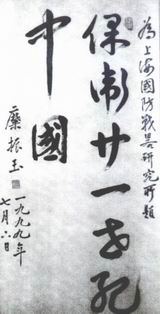 为上海國防战畧研究所題
保衛廿一世紀
中國
糜振玉
一九九九年
七月六日